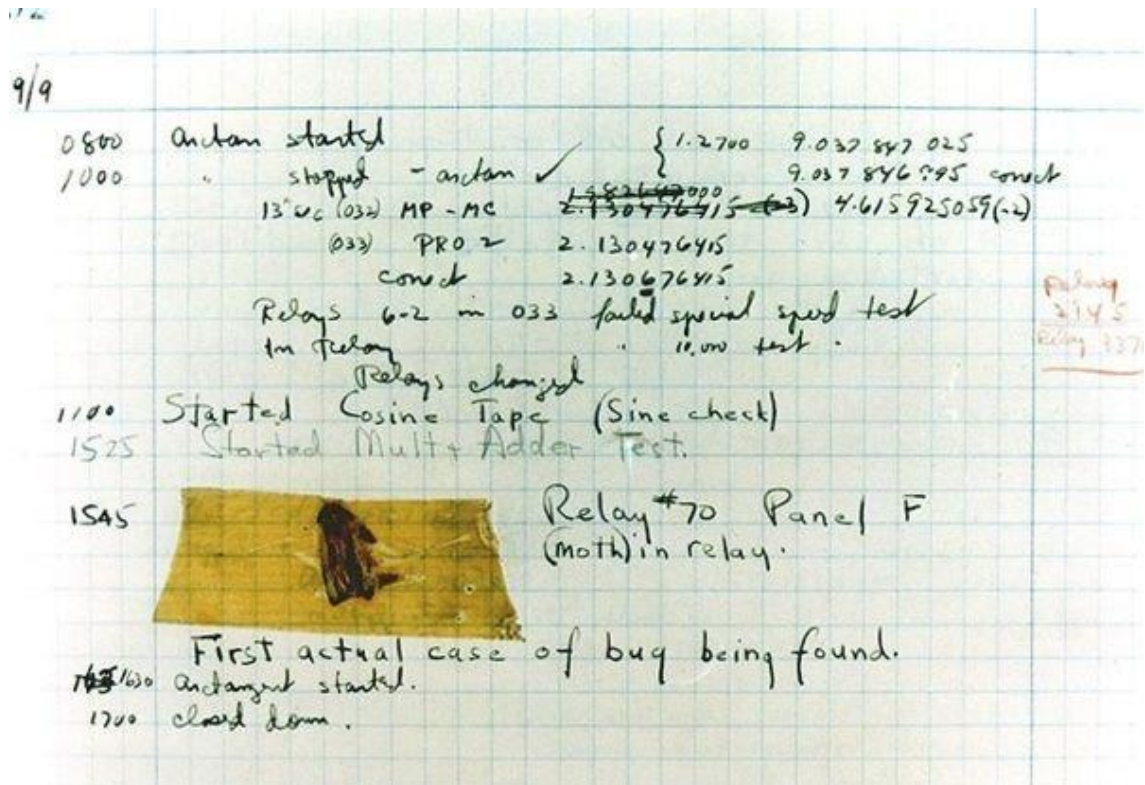 9/9
0800 antan started { 1.2700 9.037 847 025
1000 " stopped - antan ✓ 9.037 846 995 conect
13" uc (032) MP - MC 1.982647000 2.130476415 (-3) 4.615925059(-2)
(033) PRO 2 2.130476415
conect 2.130676415
Relays 6-2 in 033 failed special speed test
In Relay " 10,000 test.
Relays changed
1100 Started Cosine Tape (Sine check)
1525 Started Mult + Adder Test.
Relay
3145
Relay 3370
1545 Relay #70 Panel F
(moth) in relay.
First actual case of bug being found.
1630 antangent started.
1700 closed down.